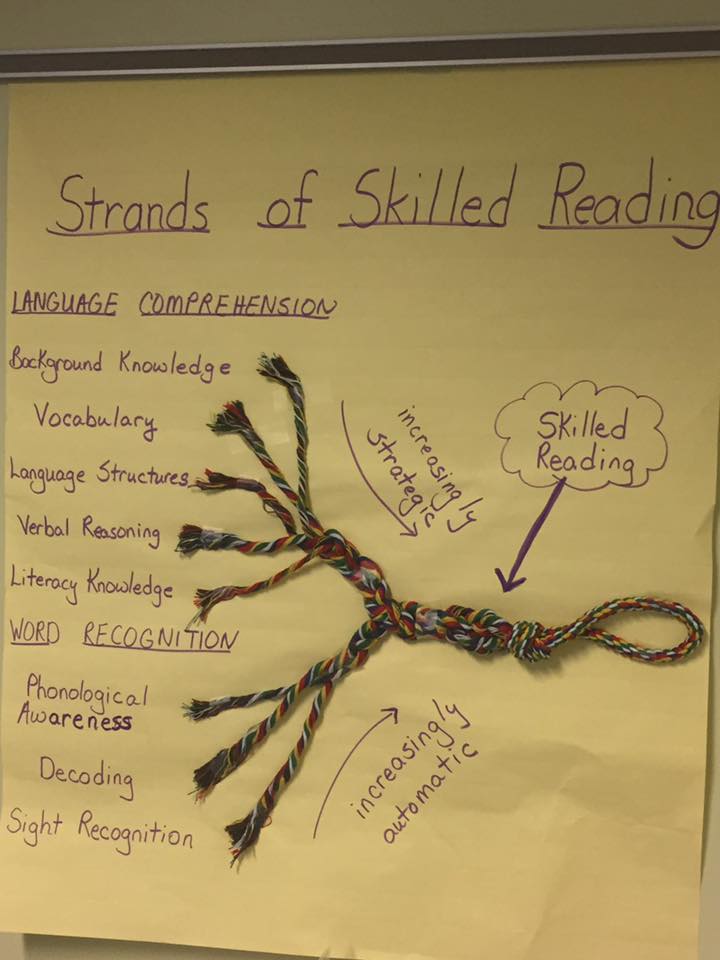 Strands of Skilled Reading
LANGUAGE COMPREHENSION
Background Knowledge
Vocabulary
Language Structures
Verbal Reasoning
Literacy Knowledge
WORD RECOGNITION
Phonological
Awareness
Decoding
Sight Recognition
increasingly
strategic
Skilled
Reading
increasingly
automatic